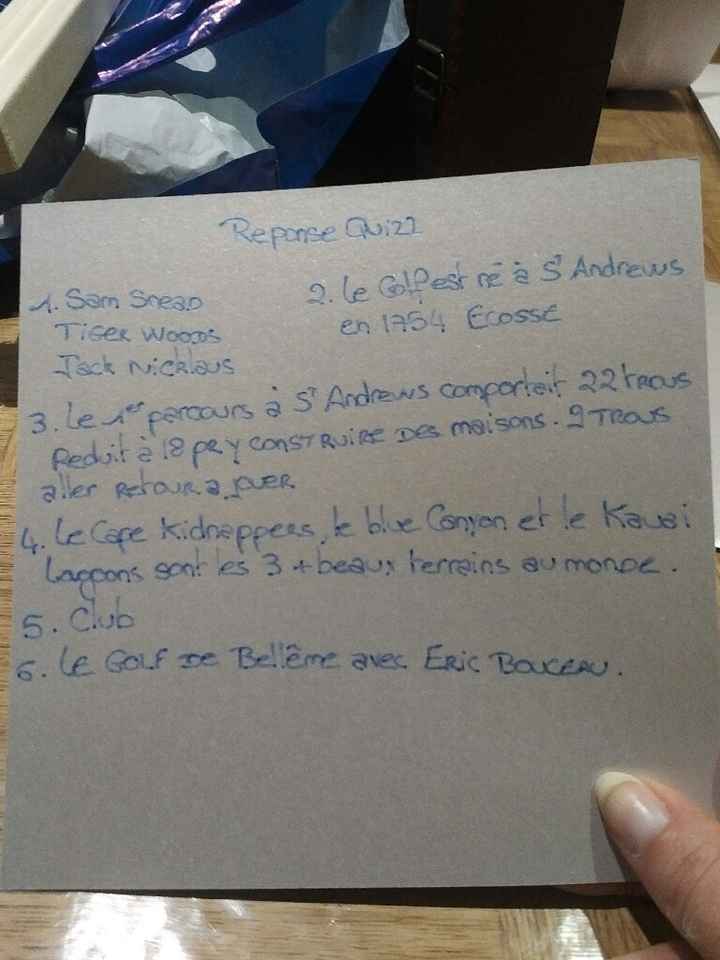 Reponse Quizz
1. Sam Snead
Tiger Woods
Jack Nicklaus
2. Le Golf est né à St Andrews
en 1754 Ecosse
3. Le 1er parcours à St Andrews comportait 22 trous
Reduit à 18 pr y construire des maisons. 9 Trous
aller retour a jouer
4. Le Cape Kidnappers, le blue Canyon et le Kauai
Lagoons sont les 3 + beaux terrains au monde.
5. Club
6. Le Golf de Bellême avec Eric Bouceau.